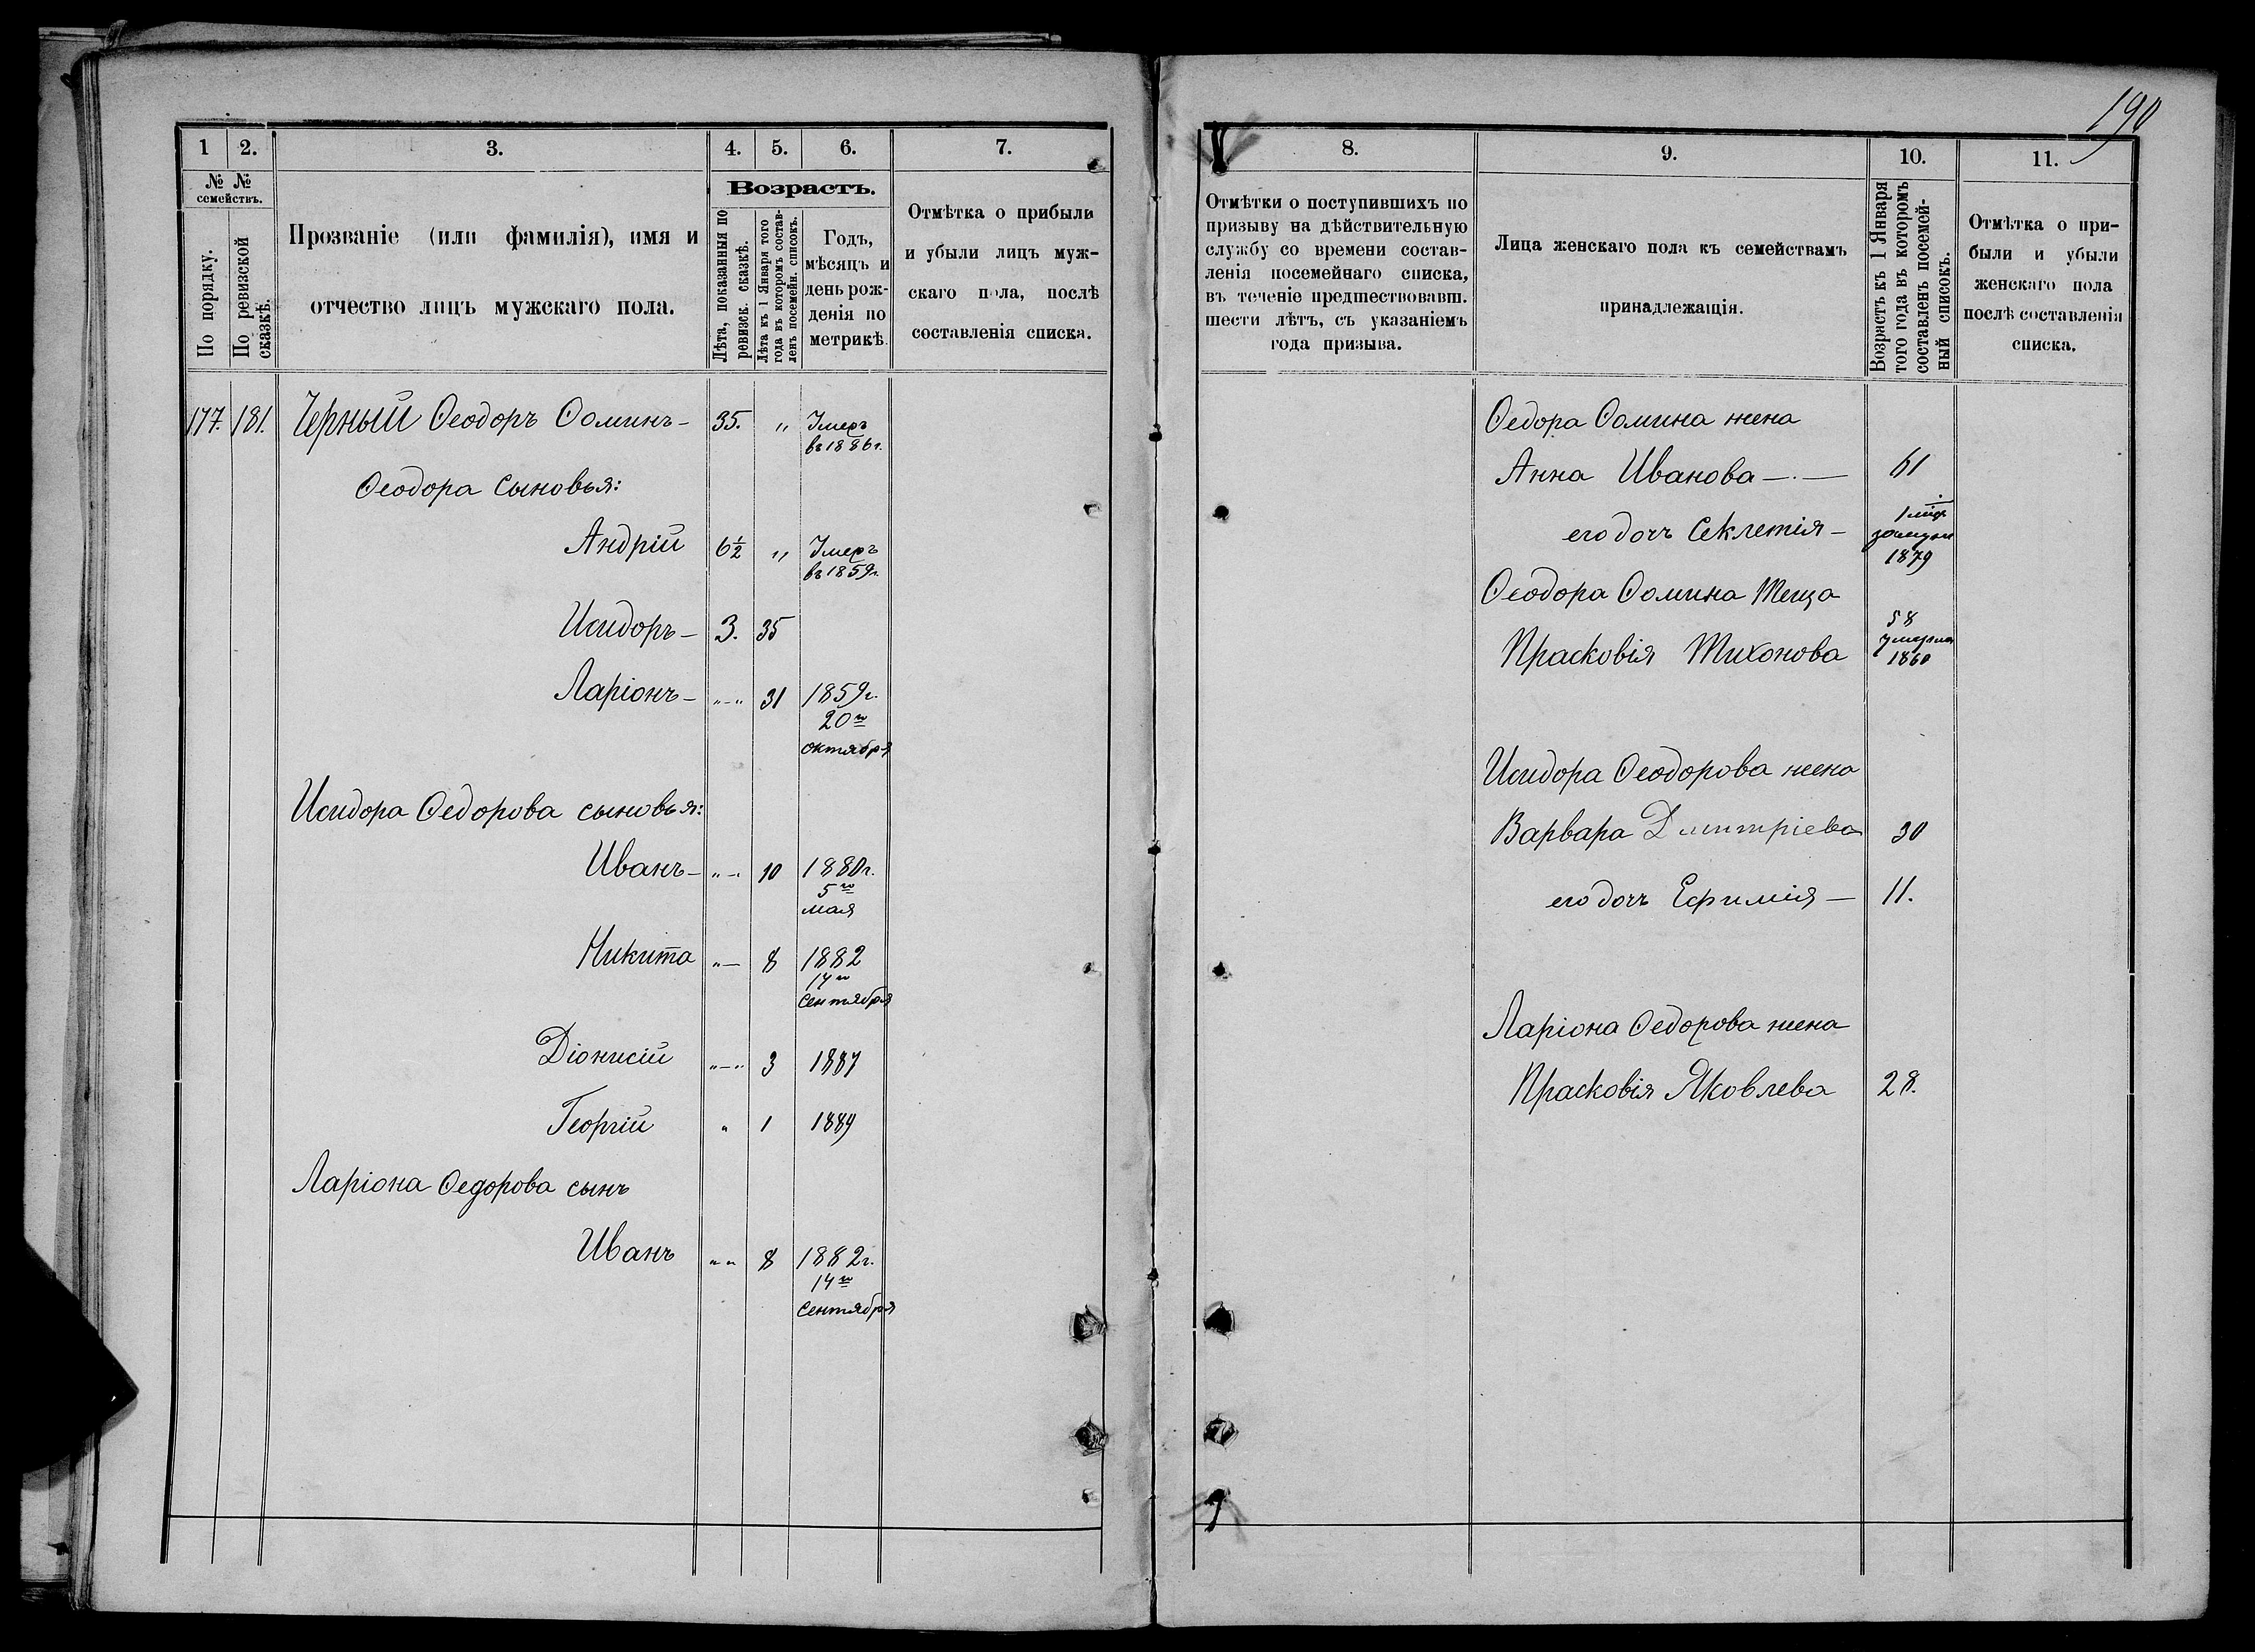 190
1 2. 3. 4. 5. 6. 7.
№ №
семействъ.
По порядку.
По ревизской
сказкѣ.
Прозваніе (или фамилія), имя и
отчество лицъ мужскаго пола.
Возрастъ.
Лѣта, показанныя по
ревизск. сказкѣ.
Лѣта къ 1 Января того
года въ которомъ состав-
ленъ посемейн. списокъ.
Годъ,
мѣсяцъ и
день рож-
денія по
метрикѣ.
Отмѣтка о прибыли
и убыли лицъ муж-
скаго пола, послѣ
составленія списка.
177. 181. Черный Ѳеодоръ Ѳоминъ - 35. " Умеръ
въ 1886 г.
Ѳеодора сыновья:
Андрій 6½ " Умеръ
въ 1859 г.
Исидоръ - 3. 35
Ларіонъ - "-" 31 1859 г.
20го
октября
Исидора Ѳедорова сыновья:
Иванъ - "-" 10 1880 г.
5го
мая
Никита "- 8 1882
14го
сентября
Діонисій "-" 3 1887
Георгій " 1 1889
Ларіона Ѳедорова сынъ
Иванъ " " 8 1882 г.
14го
сентября
8. 9. 10. 11.
Отмѣтки о поступившихъ по
призыву на дѣйствительную
службу со времени состав-
ленія посемейнаго списка,
въ теченіе предшествовавш.
шести лѣтъ, съ указаніемъ
года призыва.
Лица женскаго пола къ семействамъ
принадлежащія.
Возрастъ къ 1 Января
того года въ которомъ
составленъ посемей-
ный списокъ.
Отмѣтка о при-
были и убыли
женскаго пола
послѣ составленія
списка.
Ѳедора Ѳомина жена
Анна Иванова - . - 61
его дочь Секлетія - 1
1879
Ѳеодора Ѳомина теща
Прасковія Тихонова 58
умерла
1860
Исидора Ѳеодорова жена
Варвара Дмитріева 30
его дочь Ефимія - 11.
Ларіона Ѳедорова жена
Прасковія Яковлева 28.